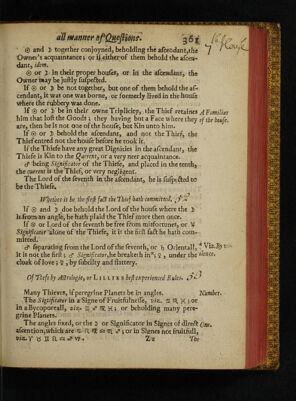 all manner of Questions. 361
7th House
☉ and ☽ together conjoyned, beholding the ascendant, the
Owner's acquaintance; or if either of them behold the ascen-
dant, idem.
☉ or ☽ in their proper houses, or in the ascendant, the
Owner may be justly suspected.
If ☉ or ☽ be not together, but one of them behold the as-
cendant, it was one was borne, or formerly lived in the house
where the robbery was done.
If ☉ or ☽ be in their owne Triplicity, the Thief retaines
him that lost the Goods; they having but a Face where they
are, then he is not one of the house, but Kin unto him.
A Familier
of the house.
If ☉ or ☽ behold the ascendant, and not the Thief, the
Thief entred not the house before he took it.
If the Thiefe have any great Dignities in the ascendant, the
Thiefe is Kin to the Querent, or a very neer acquaintance.
♂ being Significator of the Thiefe, and placed in the tenth,
the querent is the Thief, or very negligent.
The Lord of the seventh in the ascendant, he is suspected to
be the Thiefe.
Whether it be the first fact the Thief hath committed. 52
If ☉ and ☽ doe behold the Lord of the house where the ☽
is from an angle, he hath plaid the Thief more then once.
If ☉ or Lord of the seventh be free from misfortunes, or ♃
Significator alone of the Thiefe, it is the first fact he hath com-
mitted.
♂ separating from the Lord of the seventh, or ♄ Orientall,
It is not the first; ♂ Significator, he breaketh in; ♀, under the
cloak of love; ☿, by subtilty and flattery.
Viz. By vi-
olence.
Of Thefts by Astrologie, or LILLIES best experienced Rules. 53
Many Thieves, if peregrine Planets be in angles.
Number.
The Significator in a Signe of Fruitfulnesse, viz. ♋ ♏ ♓; or
in a Bycorporeall, viz. ♊ ♐ ♍ ♓; or beholding many pere-
grine Planets.
The angles fixed, or the ☽ or Significator in Signes of direct
ascention, which are ♋ ♌ ♍ ♎ ♏ ♐; or in Signes not fruitfull,
viz. ♈ ♉ ♊ ♌ ♎ ♐ ♑.
One.
Zz